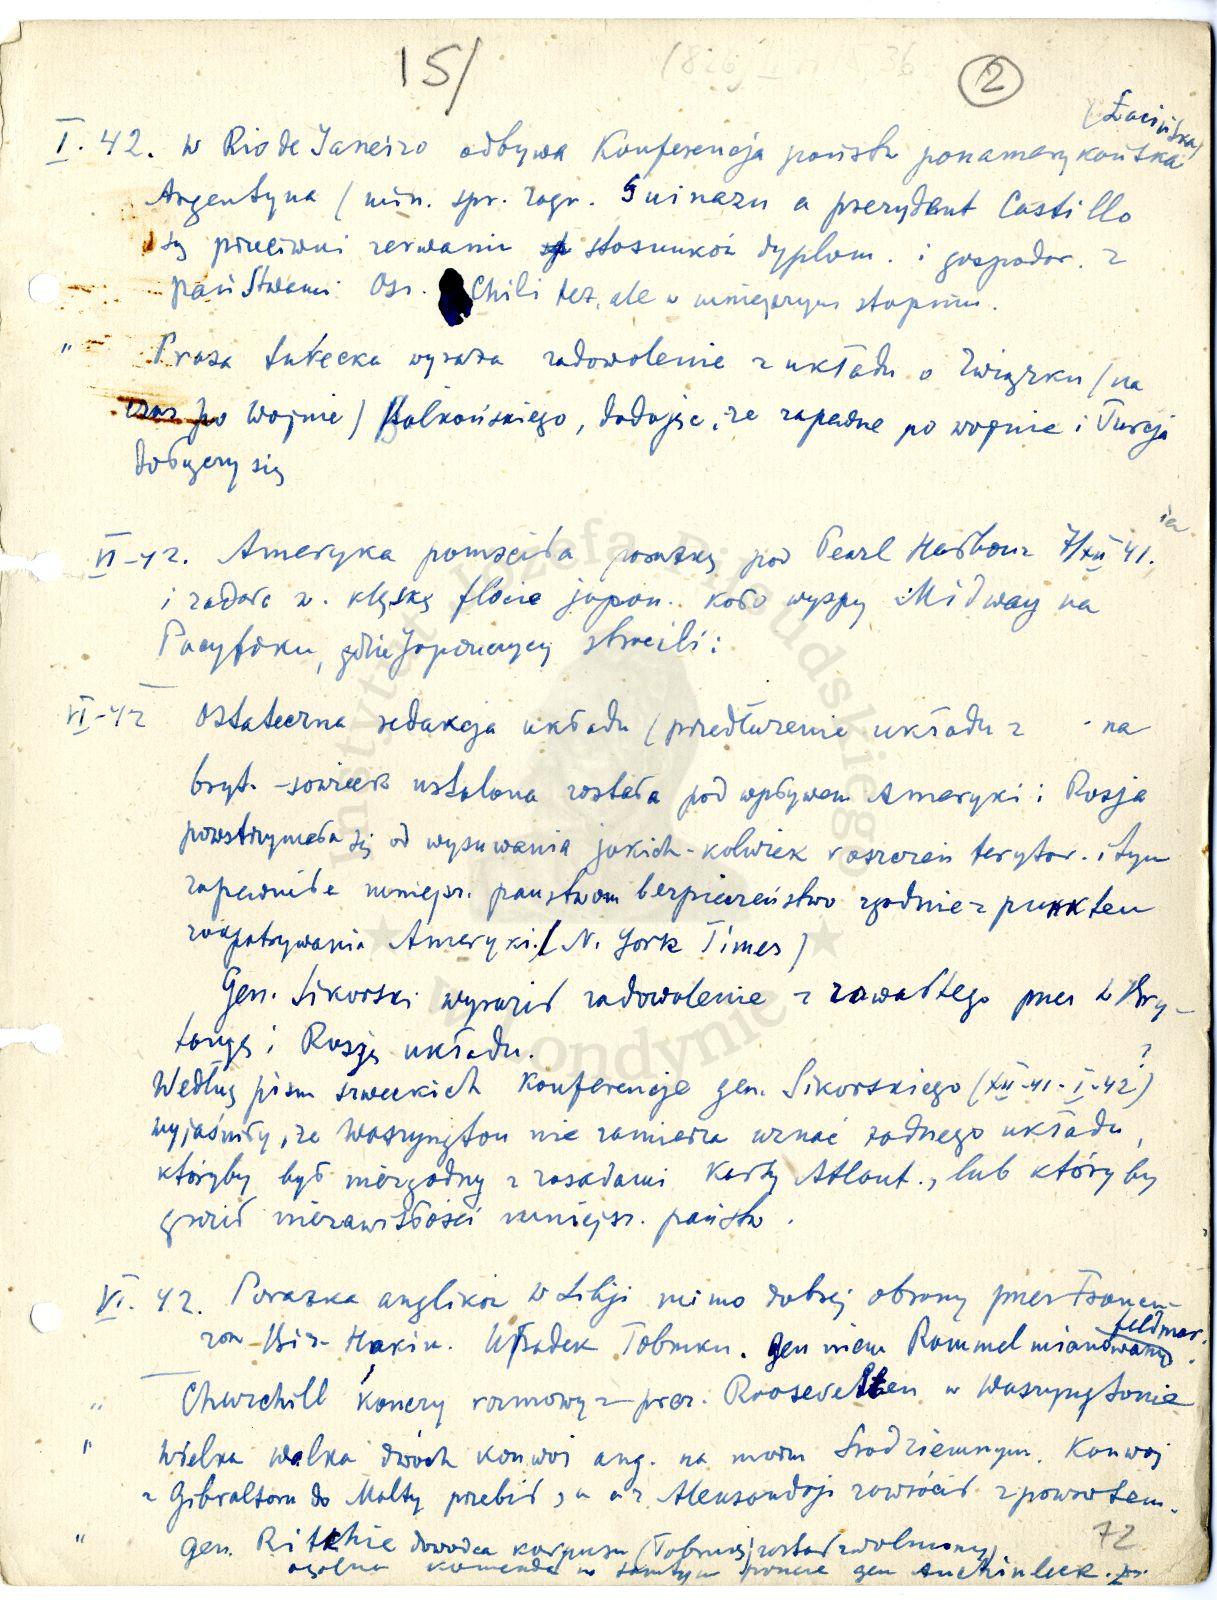 15/
2
(Łacińska)
I. 42. w Rio de Janeiro odbywa Konferencja państw panamerykańska
Argentyna (min. spr. zagr. Guinazu a prezydent Castillo
są przeciwni zerwaniu stosunków dyplom. i gospodar. z
państwami Osi. Chili też, ale w mniejszym stopniu.
" Prasa turecka wyraża zadowolenie z układu o Związku (na
czas po wojnie) Bałkańskiego, dodając, że zapadnie po wojnie i Turcja
dołączy się
VI-42. Ameryka pomściła porażkę pod Pearl Harbour 7/XII 41.
i zadała w. klęskę flocie japon. koło wyspy Midway na
Pacyfiku, gdzie Japończycy stracili:
VI-42 Ostateczna redakcja układu (przedłużenie układu z na
bryt.-sowieck ustalona została pod wpływem Ameryki i Rosja
powstrzymała się od wysuwania jakich-kolwiek roszczeń terytor. i tym
zapewniła mniejsz. państwom bezpieczeństwo zgodnie z punktem
zapatrywania Ameryki. (N. York Times)
Gen. Sikorski wyraził zadowolenie z zawartego przez W Bry-
tanję i Rosję układu.
Według pism szweckich Konferencje gen. Sikorskiego (XII-41-I-42?)
wyjaśniły, że Waszyngton nie zamierza uznać żadnego układu,
któryby był niezgodny z zasadami Karty Atlant., lub któryby
groził niezawisłości mniejsz. państw.
VI. 42. Porażka anglików w Libji mimo dobrej obrony przez Francu-
zów Bir-Hakim. Upadek Tobruku. Gen niem Rommel mianowany feldmar.
" Churchill kończy rozmowy z prez. Rooseveltem w Waszyngtonie
" Wielka walka dwóch konwoi ang. na morzu Śródziemnym. Konwoj
z Gibraltaru do Malty przebił się a z Aleksandrji zawrócił z powrotem.
" gen. Ritchie dowódca korpusu (Tobruk) został zwolniony
ogólna komenda w samym froncie gen Auchinleck.
72
Instytut Józefa Piłsudskiego
w Londynie